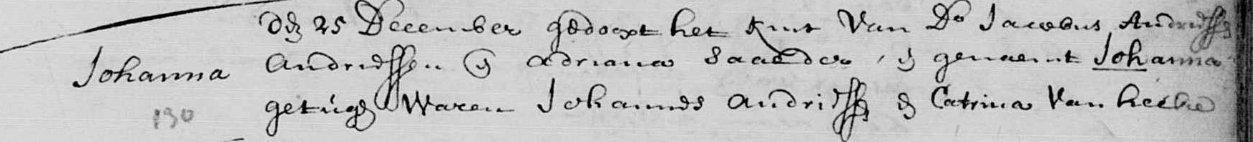 den 25 December gedoopt het kint Van Do Jacobus Andriessen
Johanna Andriessen en adriana en genaemt Johanna
getuijgen Waren Johannes andriessen en Catrina Van
130